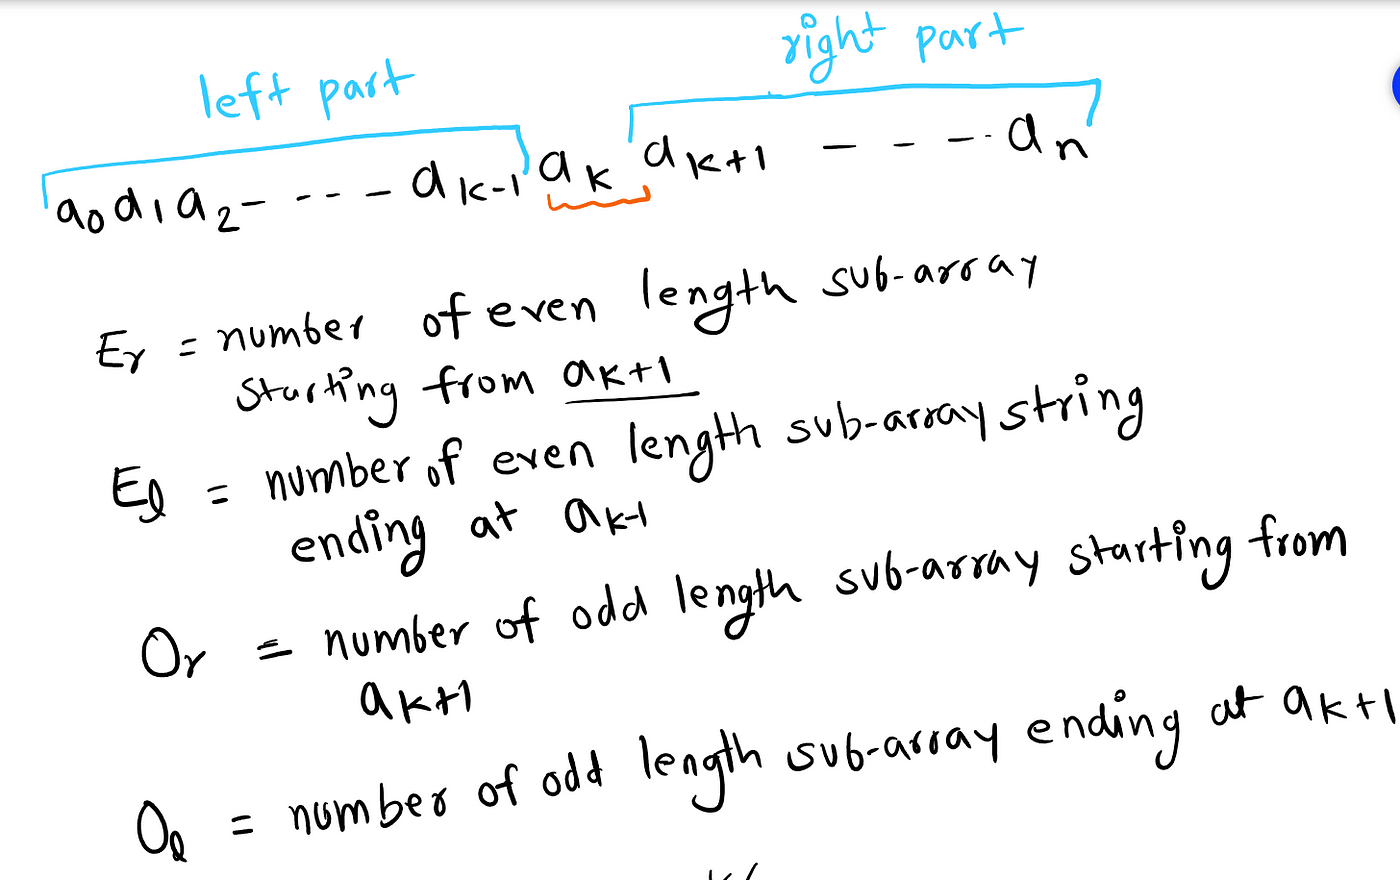 right part
left part
a0 a1 a2 - - - - - ak-1 ak ak+1 - - - - an
Er = number of even length sub-array
starting from ak+1
El = number of even length sub-array string
ending at ak-1
Or = number of odd length sub-array starting from
ak+1
Ol = number of odd length sub-array ending at ak+1